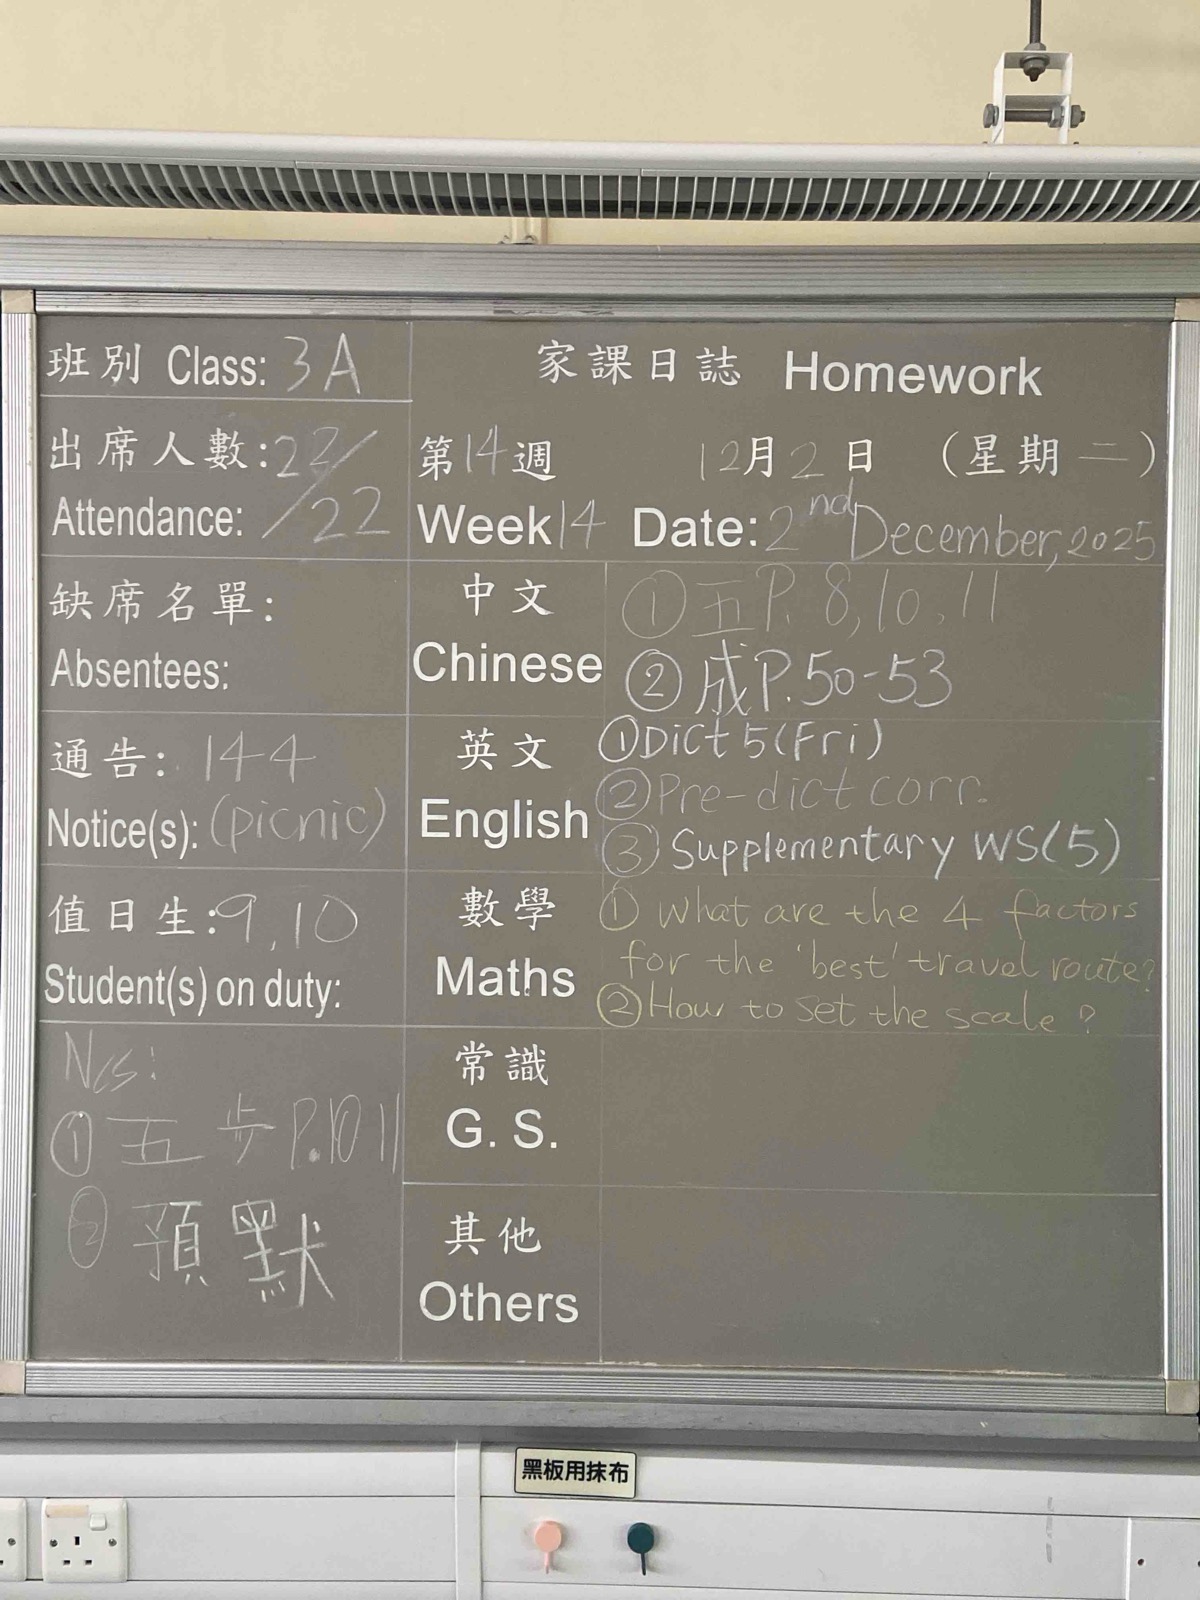 班別 Class: 3A
家課日誌 Homework
出席人數: 22/
Attendance: /22
第14週 12月2日 (星期二)
Week 14 Date: 2nd December, 2025
缺席名單:
Absentees:
中文
Chinese
① 五 P. 8, 10, 11
② 成 P. 50-53
通告: 144
Notice(s): (picnic)
英文
English
① Dict 5 (Fri)
② Pre-dict corr.
③ Supplementary WS(5)
值日生: 9, 10
Student(s) on duty:
數學
Maths
① What are the 4 factors
for the 'best' travel route?
② How to set the scale?
Ncs:
① 五 步 P.10 11
② 預默
常識
G. S.
其他
Others
黑板用抹布